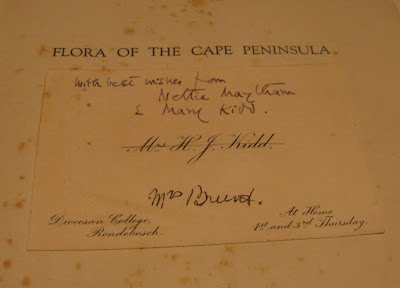 FLORA OF THE CAPE PENINSULA
With best wishes from
Nettie Maytham
& Mary Kidd.
Mrs H. J. Kidd.
Mrs
Diocesan College,
Rondebosch.
At Home
1st and 3rd Thursday.